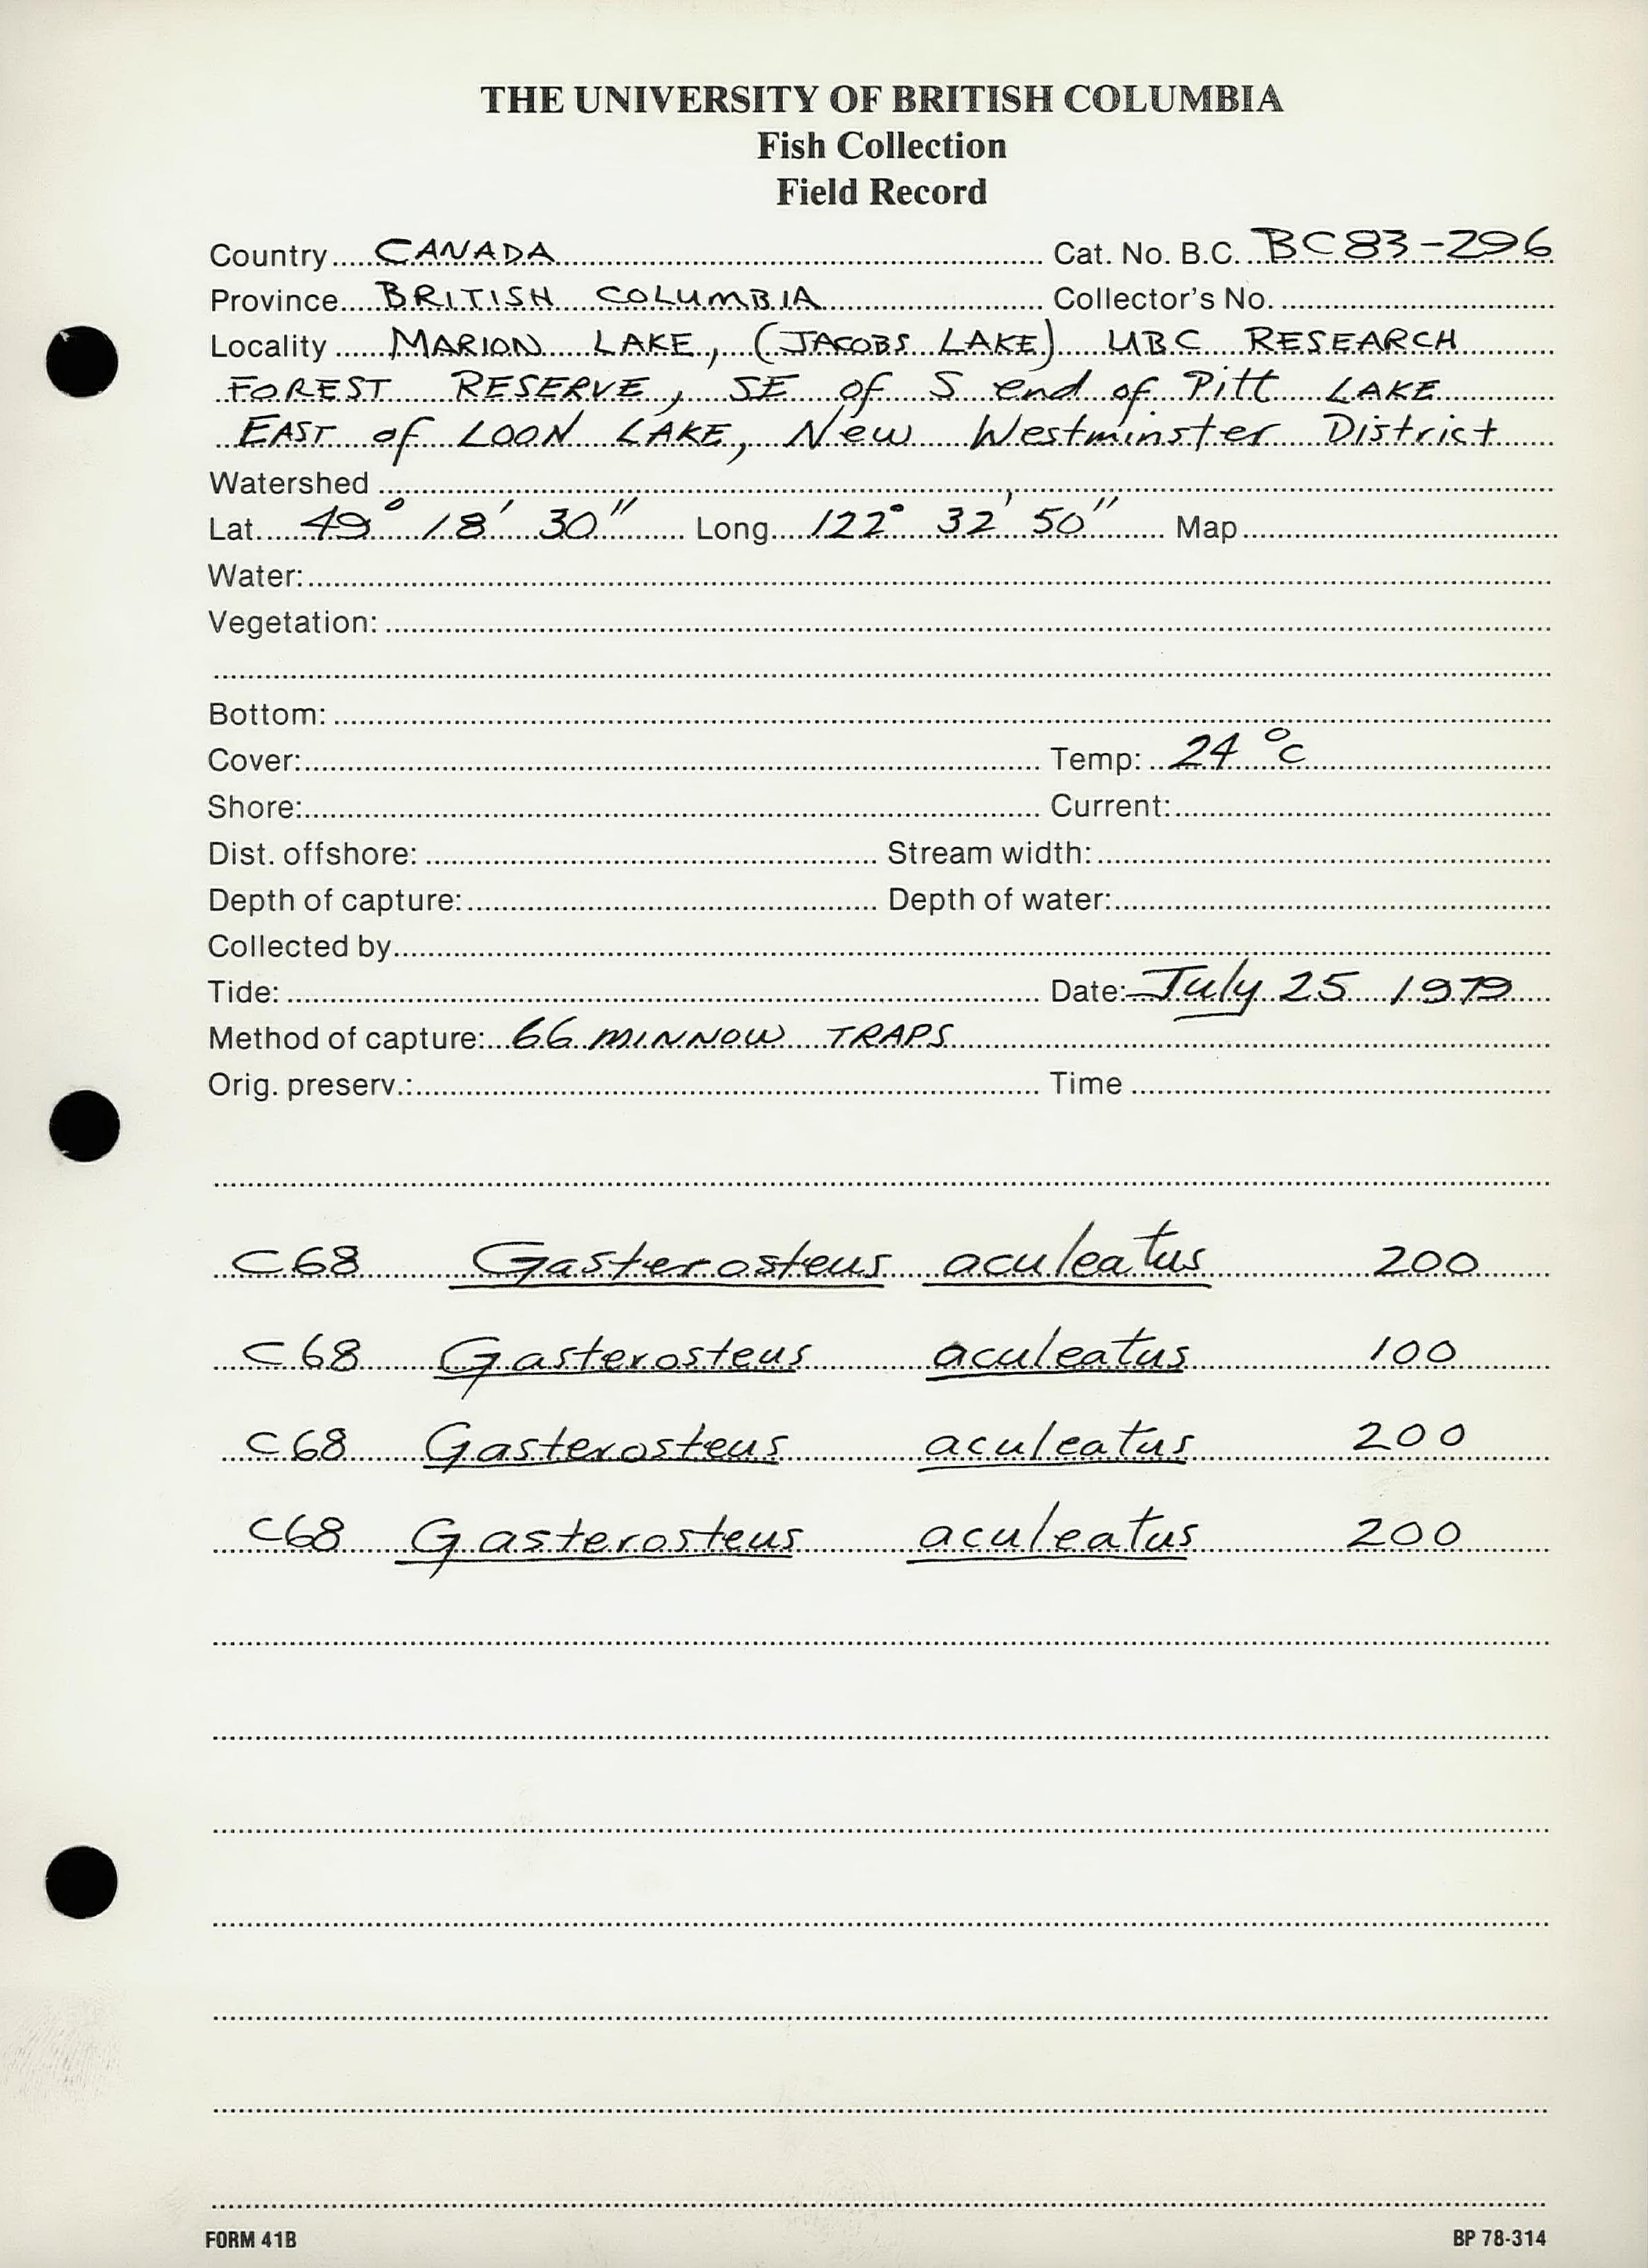 THE UNIVERSITY OF BRITISH COLUMBIA
Fish Collection
Field Record
Country CANADA Cat. No. B.C. BC83-296
Province BRITISH COLUMBIA Collector's No.
Locality MARION LAKE, (JACOBS LAKE) UBC RESEARCH
FOREST RESERVE, SE of S end of Pitt LAKE
EAST of LOON LAKE, New Westminster District
Watershed
Lat. 49° 18' 30" Long. 122° 32' 50" Map
Water:
Vegetation:
Bottom:
Cover: Temp: 24 °C
Shore: Current:
Dist. offshore: Stream width:
Depth of capture: Depth of water:
Collected by
Tide: Date: July 25 1979
Method of capture: 66 MINNOW TRAPS
Orig. preserv.: Time
C68 Gasterosteus aculeatus 200
C68 Gasterosteus aculeatus 100
C68 Gasterosteus aculeatus 200
C68 Gasterosteus aculeatus 200
FORM 41B BP 78-314